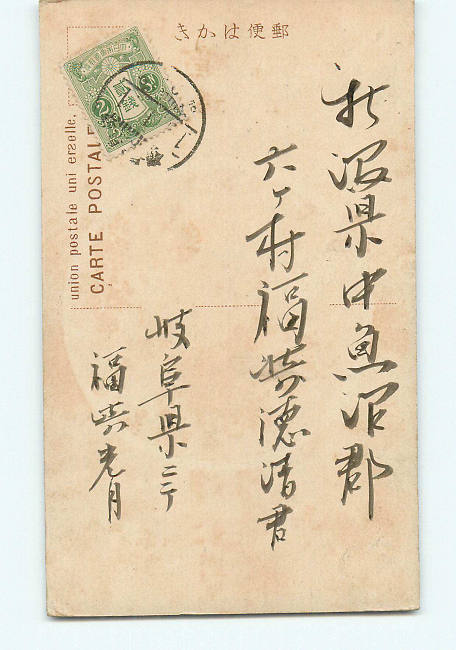 きかは便郵
新潟県中魚沼郡
六ヶ村福崎徳清君
岐阜県ニテ
福崎光月
union postale uni erselle.
CARTE POSTALE